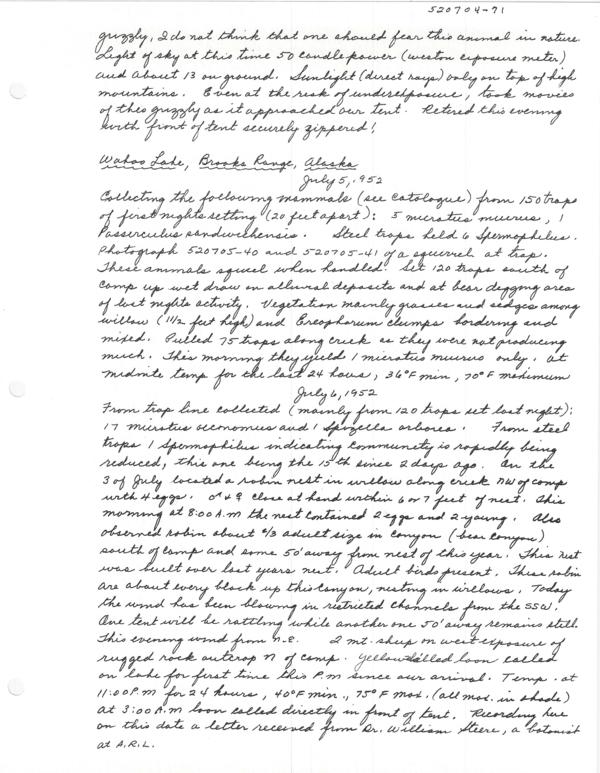 520704-71
grizzly, I do not think that one should fear this animal in nature.
Light of sky at this time 50 candlepower (weston exposure meter)
and about 13 on ground. Sunlight (direct rays) only on top of high
mountains. Even at the risk of underexposure, took movies
of this grizzly as it approached our tent. Retired this evening
with front of tent securely zippered!
Wahoo Lake, Brooks Range, Alaska
July 5, 1952
Collecting the following mammals (see catologue) from 150 traps
of first nights setting (20 feet apart): 5 microtus miurus, 1
Passerculus sandwichensis. Steel traps held 6 Spermophilus.
Photograph 520705-40 and 520705-41 of a squirrel at trap.
These animals squeal when handled. Set 120 traps south of
camp up wet draw on alluvial deposits and at bear digging area
of last nights activity. Vegetation mainly grasses and sedges among
willow (1 1/2 feet high) and Ereophorum clumps bordering and
mixed. Pulled 75 traps along creek as they were not producing
much. This morning they yield 1 microtus miurus only. At
midnite temp for the last 24 hours, 36°F min, 70°F maximum
July 6, 1952
From trap line collected (mainly from 120 traps set last night):
17 microtus oeconomus and 1 Spizella arborea. From steel
traps 1 Spermophilus indicating community is rapidly being
reduced, this one being the 15th since 2 days ago. On the
3 of July located a robin nest in willow along creek NW of camp
with 4 eggs. ♂ & ♀ close at hand within 6 or 7 feet of nest. This
morning at 8:00 A.M the nest contained 2 eggs and 2 young. Also
observed robin about 2/3 adult size in canyon (bear canyon)
south of camp and some 50' away from nest of this year. This nest
was built over last years nest. Adult birds present. These robin
are about every block up this canyon, nesting in willows. Today
the wind has been blowing in restricted channels from the SSW.
One tent will be rattling while another one 50' away remains still.
This evening wind from N.E. 2 mt. sheep on west exposure of
rugged rock outcrop N of camp. Yellow billed loon called
on lake for first time this P.M since our arrival. Temp. at
11:00 P.M for 24 hours, 40°F min., 75°F max. (all max. in shade)
At 3:00 A.M loon called directly in front of tent. Recording here
on this date a letter received from Dr. William Steere, a botanist
at A.R.L.